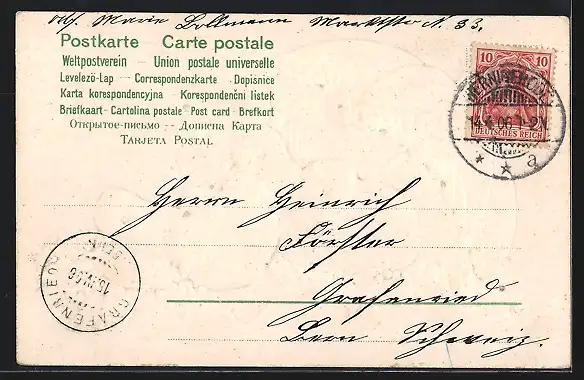 Abs. Marie Bollmann Marktstr N. 33.
Postkarte Carte postale
Weltpostverein — Union postale universelle
Levelező-Lap — Correspondenzkarte - Dopisnice
Karta korespondencyjna - Korespondenční listek
Briefkaart - Cartolina postale - Post card - Brefkort
Открытое-письмо -- Дописна Карта
Tarjeta Postal
10 10
DEUTSCHES REICH
1-2N
* * a
Herrn Heinrich
Förster
Grafenried
Bern Schweiz.
GRAFENRIED
BERN